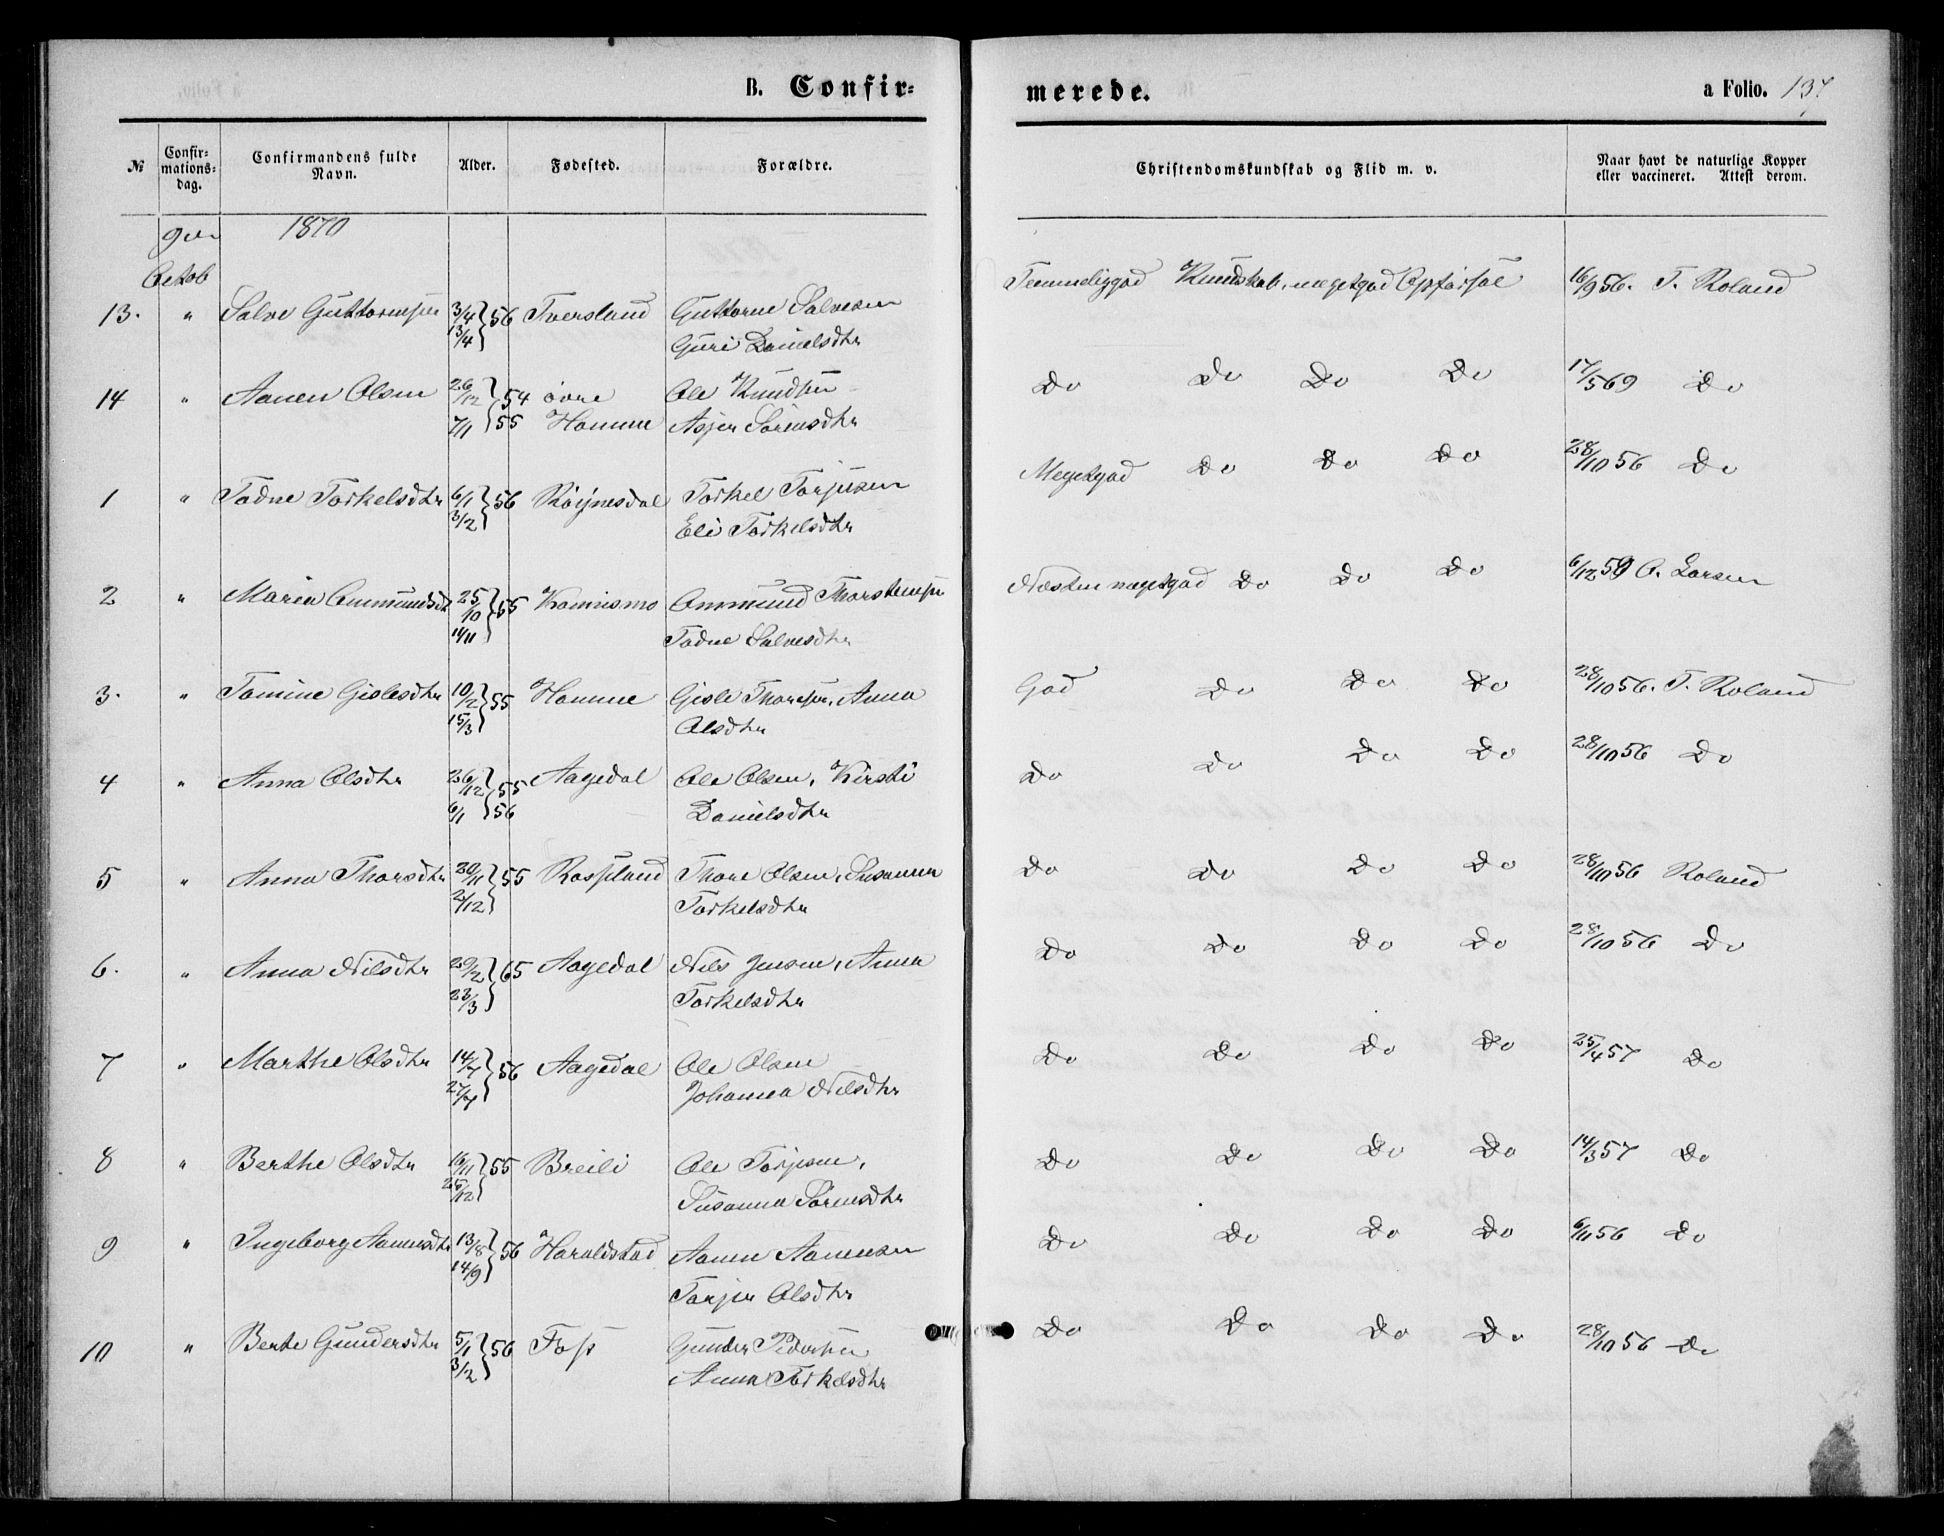 B. Confir=
merede.
a Folio. 137
№ Confir=mations=dag. Confirmandens fulde Navn. Alder. Fødested. Forældre. Christendomskundskab og Flid m. v. Naar havt de naturlige Kopper eller vaccineret. Attest derom.
9de 1870
Octob
Temmeliggod Kundskab, megetgod Opførsel 16/9 56. T. Roland
13. " Salve Guttormsen 3/4 13/4 } 56 Tversland Guttorm Salvesen
Guri Danielsdtr
14 " Aanen Olsen 26/12 } 54 øvre Ole Knudsen Do Do Do Do 17/5 69 Do
7/1 } 55 Homme Asjer Sørensdtr
1 " Todne Torkelsdtr 6/1 3/2 } 56 Røijnesdal Torkel Torjusen Megetgod Do Do Do 28/10 56 Do
Eli Torkelsdtr
2 " Maria Ommundsdt 25/10 14/11 } 55 Kornismo Ommund Thorstensen Næsten megetgod Do Do Do 6/12 59 O. Larsen
Todne Salvesdtr
3. " Tomine Gislesdtr 10/2 15/3 } 55 Homme Gisle Thorsen, Anna God Do Do Do 28/10 56. T. Roland
Olsdtr
4 " Anna Olsdtr 26/12 } 55 Aagedal Ole Olsen, Kirsti Do Do Do Do 28/10 56 Do
6/1 } 56 Danielsdtr
5 " Anna Thorsdtr 20/11 2/12 } 55 Rossland Thore Olsen, Susanna Do Do Do Do 28/10 56 Roland
Torkelsdtr
6. " Anna Nilsdtr 20/2 23/3 } 65 Aagedal Nils Jensen, Anna Do Do Do Do 28/10 56 Do
Torkelsdtr
7 " Marthe Olsdtr 14/7 27/7 } 56 Aagedal Ole Olsen Do Do Do Do 25/4 57 Do
Johanna Nilsdtr
8 " Berthe Olsdtr 16/11 25/12 } 55 Breili Ole Torjesen, Do Do Do Do 14/3 57 Do
Susanna Sørensdtr
9 " Ingeborg Aanensdtr 13/8 14/9 } 56 Haraldstad Aanen Aanensen Do Do Do Do 6/11 56 Do
Torjer Olsdtr
10 " Berte Gundersdtr 5/1 3/2 } 56 Foss Gunder Pedersen Do Do Do Do 28/10 56 Do
Anna Torkelsdtr